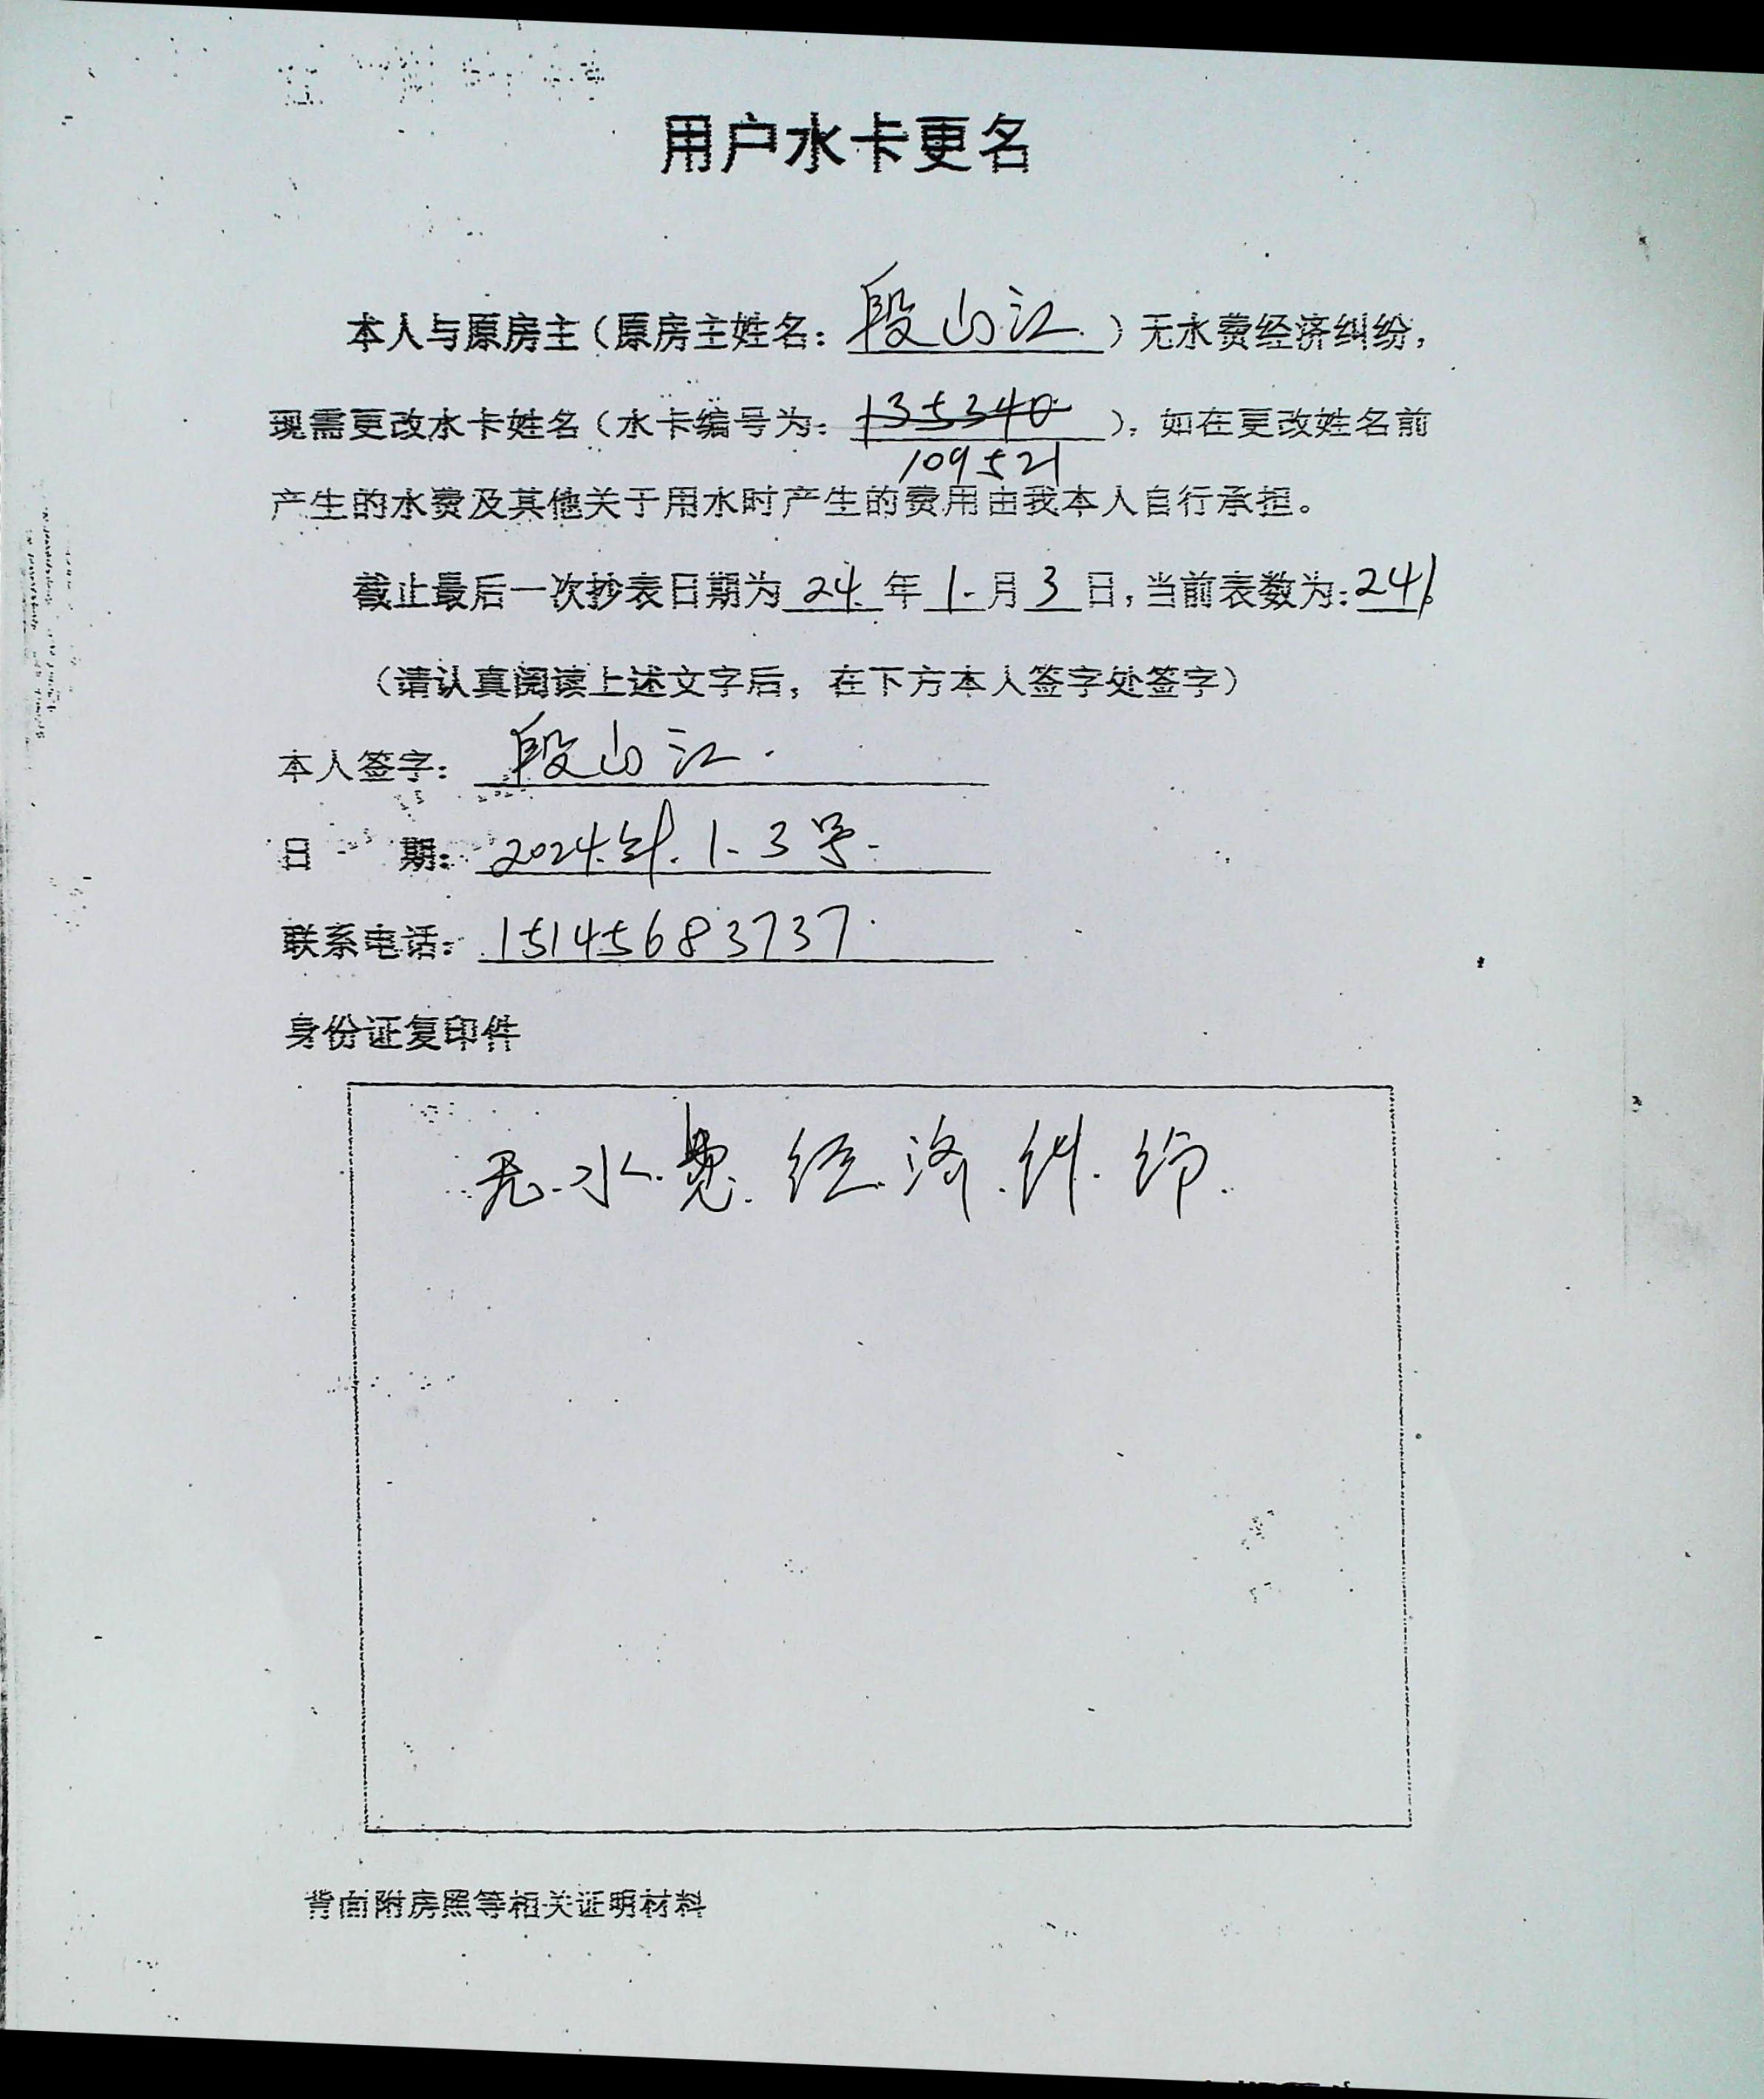 用户水卡更名
本人与原房主（原房主姓名：段山江）无水费经济纠纷，
现需更改水卡姓名（水卡编号为：135340），如在更改姓名前
109521
产生的水费及其他关于用水时产生的费用由我本人自行承担。
截止最后一次抄表日期为24年1月3日，当前表数为：241。
（请认真阅读上述文字后，在下方本人签字处签字）
本人签字：段山江
日期：2024年.1.3号
联系电话：15145683737
身份证复印件
无.水.费.经.济.纠.纷.
背面附房照等相关证明材料